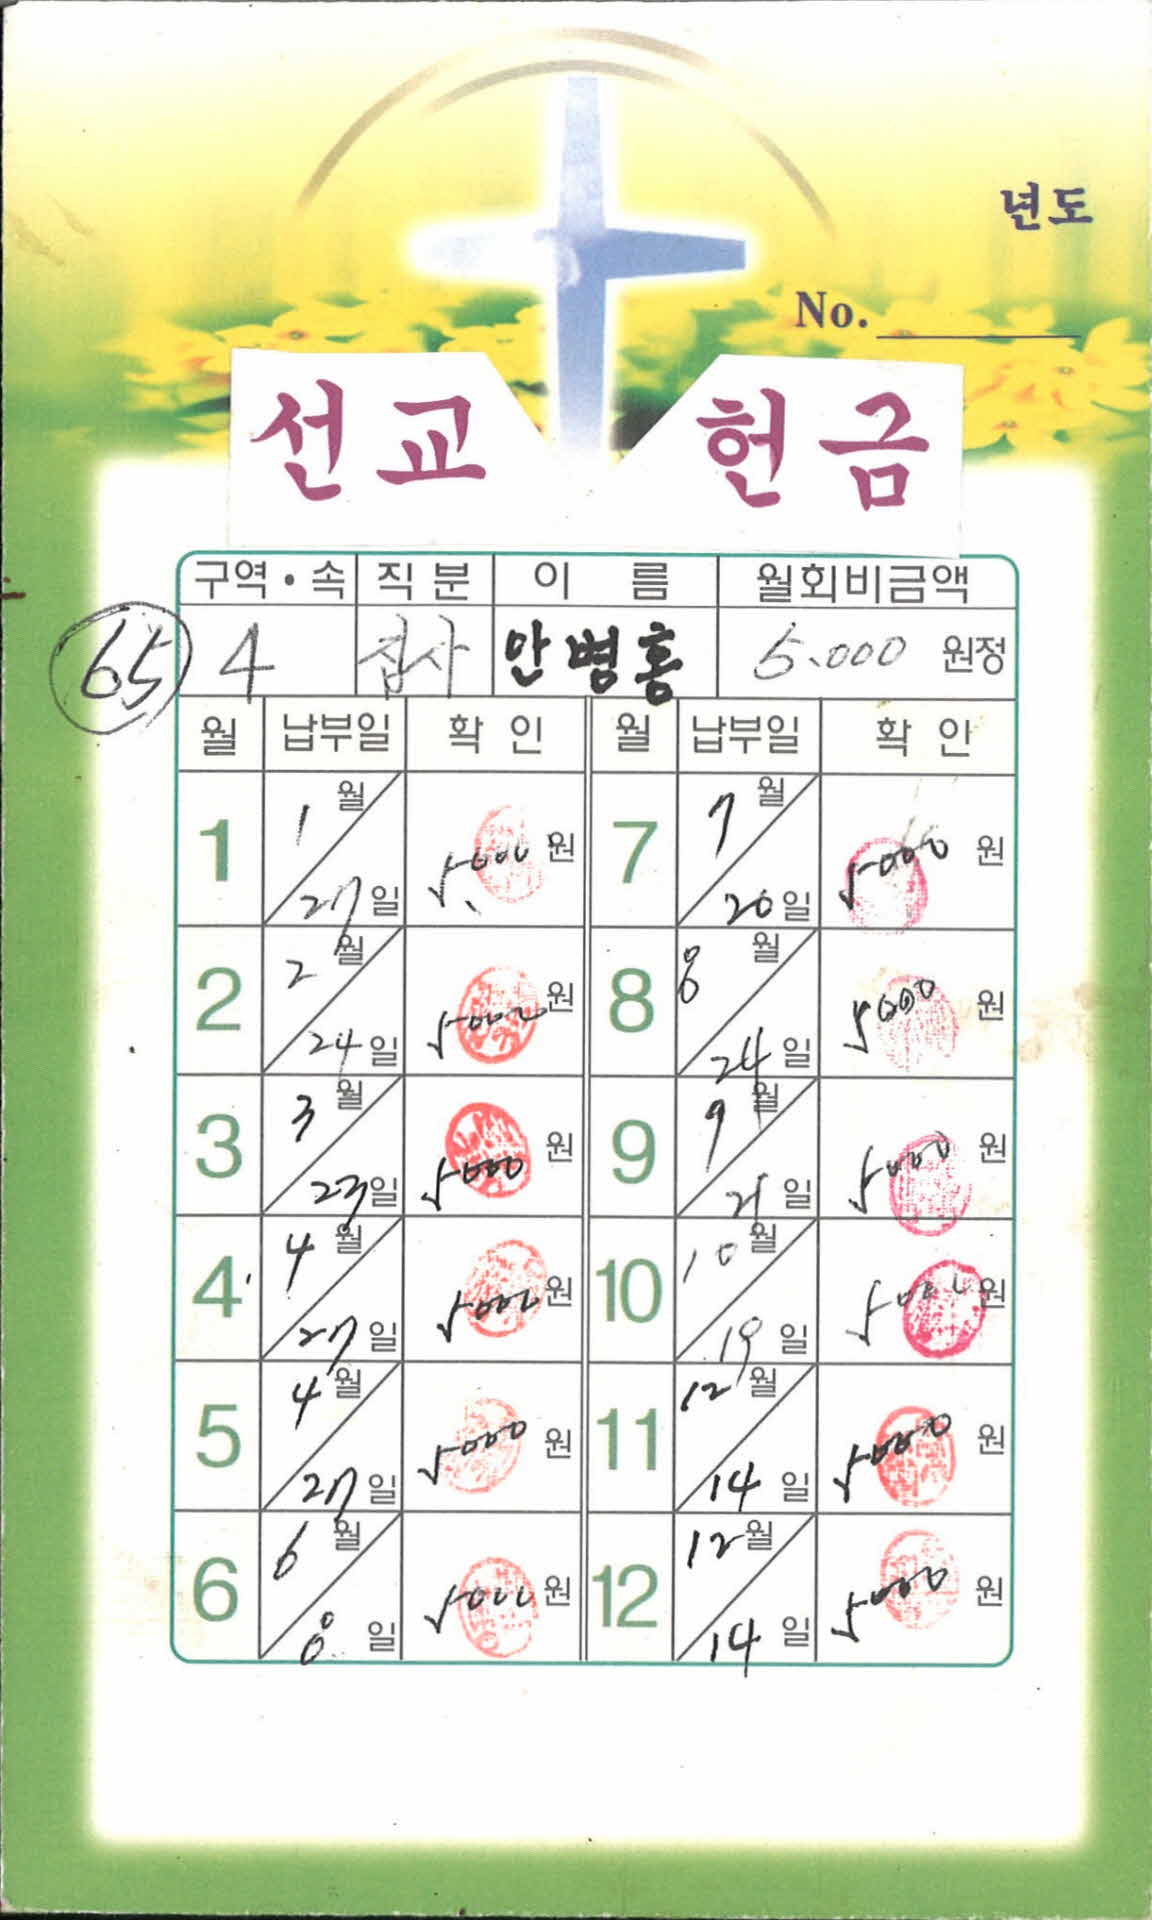 년도
No.
선교 헌금
구역·속 직분 이름 월회비금액
65 4 집사 안병홍 5.000 원정
월 납부일 확인 월 납부일 확인
1 1월 27일 5000원 7 7월 20일 5000원
2 2월 24일 5000원 8 8월 24일 5000원
3 3월 23일 5000원 9 9월 21일 5000원
4 4월 27일 5000원 10 10월 19일 5000원
5 4월 27일 5000원 11 12월 14일 5000원
6 6월 8일 5000원 12 12월 14일 5000원